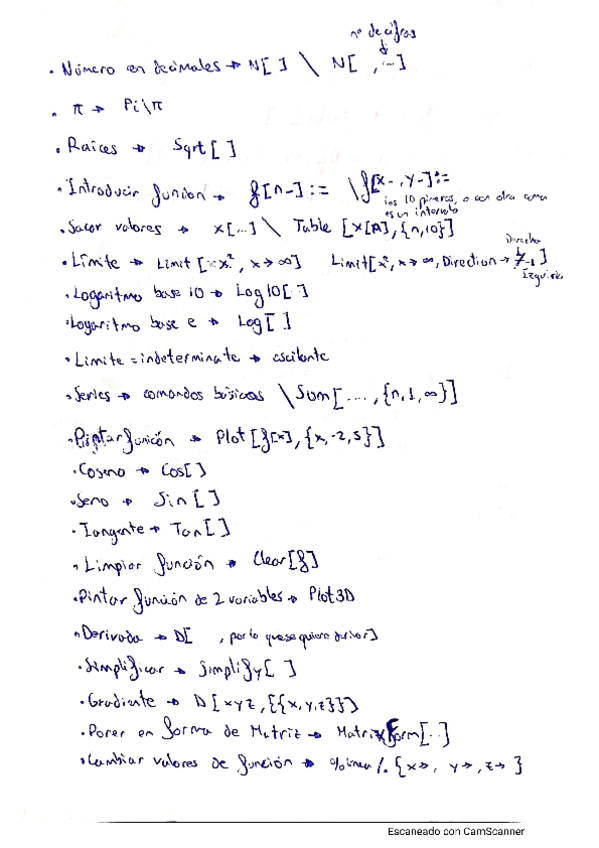 nº de cifras
• Número en decimales → N[ ] \ N[ , ...]
• π → Pi\π
• Raíces → Sqrt[ ]
• Introducir función → f[n_]:= \f[x_,y_]:=
los 10 primeros, o con otra coma es un intervalo
• Sacar valores → x[...] \ Table [x[n],{n,10}]
Derecha
• Límite → Limit[ x², x→∞] Limit[x²,x→∞,Direction→ -1]
Izquierda
• Logaritmo base 10 → Log10[ ]
• Logaritmo base e → Log[ ]
• Limite = indeterminate → oscilante
• Series → comandos básicos \Sum[....,{n,1,∞}]
• Pintar función → Plot[f[x],{x,-2,5}]
• Coseno → Cos[ ]
• Seno → Sin[ ]
• Tangente → Tan[ ]
• Limpiar función → Clear[f]
• Pintar función de 2 variables → Plot3D
• Derivada → D[ , por lo que se quiere derivar]
• Simplificar → Simplify[ ]
• Gradiente → D[xyz,{{x,y,z}}]
• Poner en forma de Matriz → MatrixForm[..]
• Cambiar valores de función → %línea/. {x→, y→,z→ }
Escaneado con CamScanner